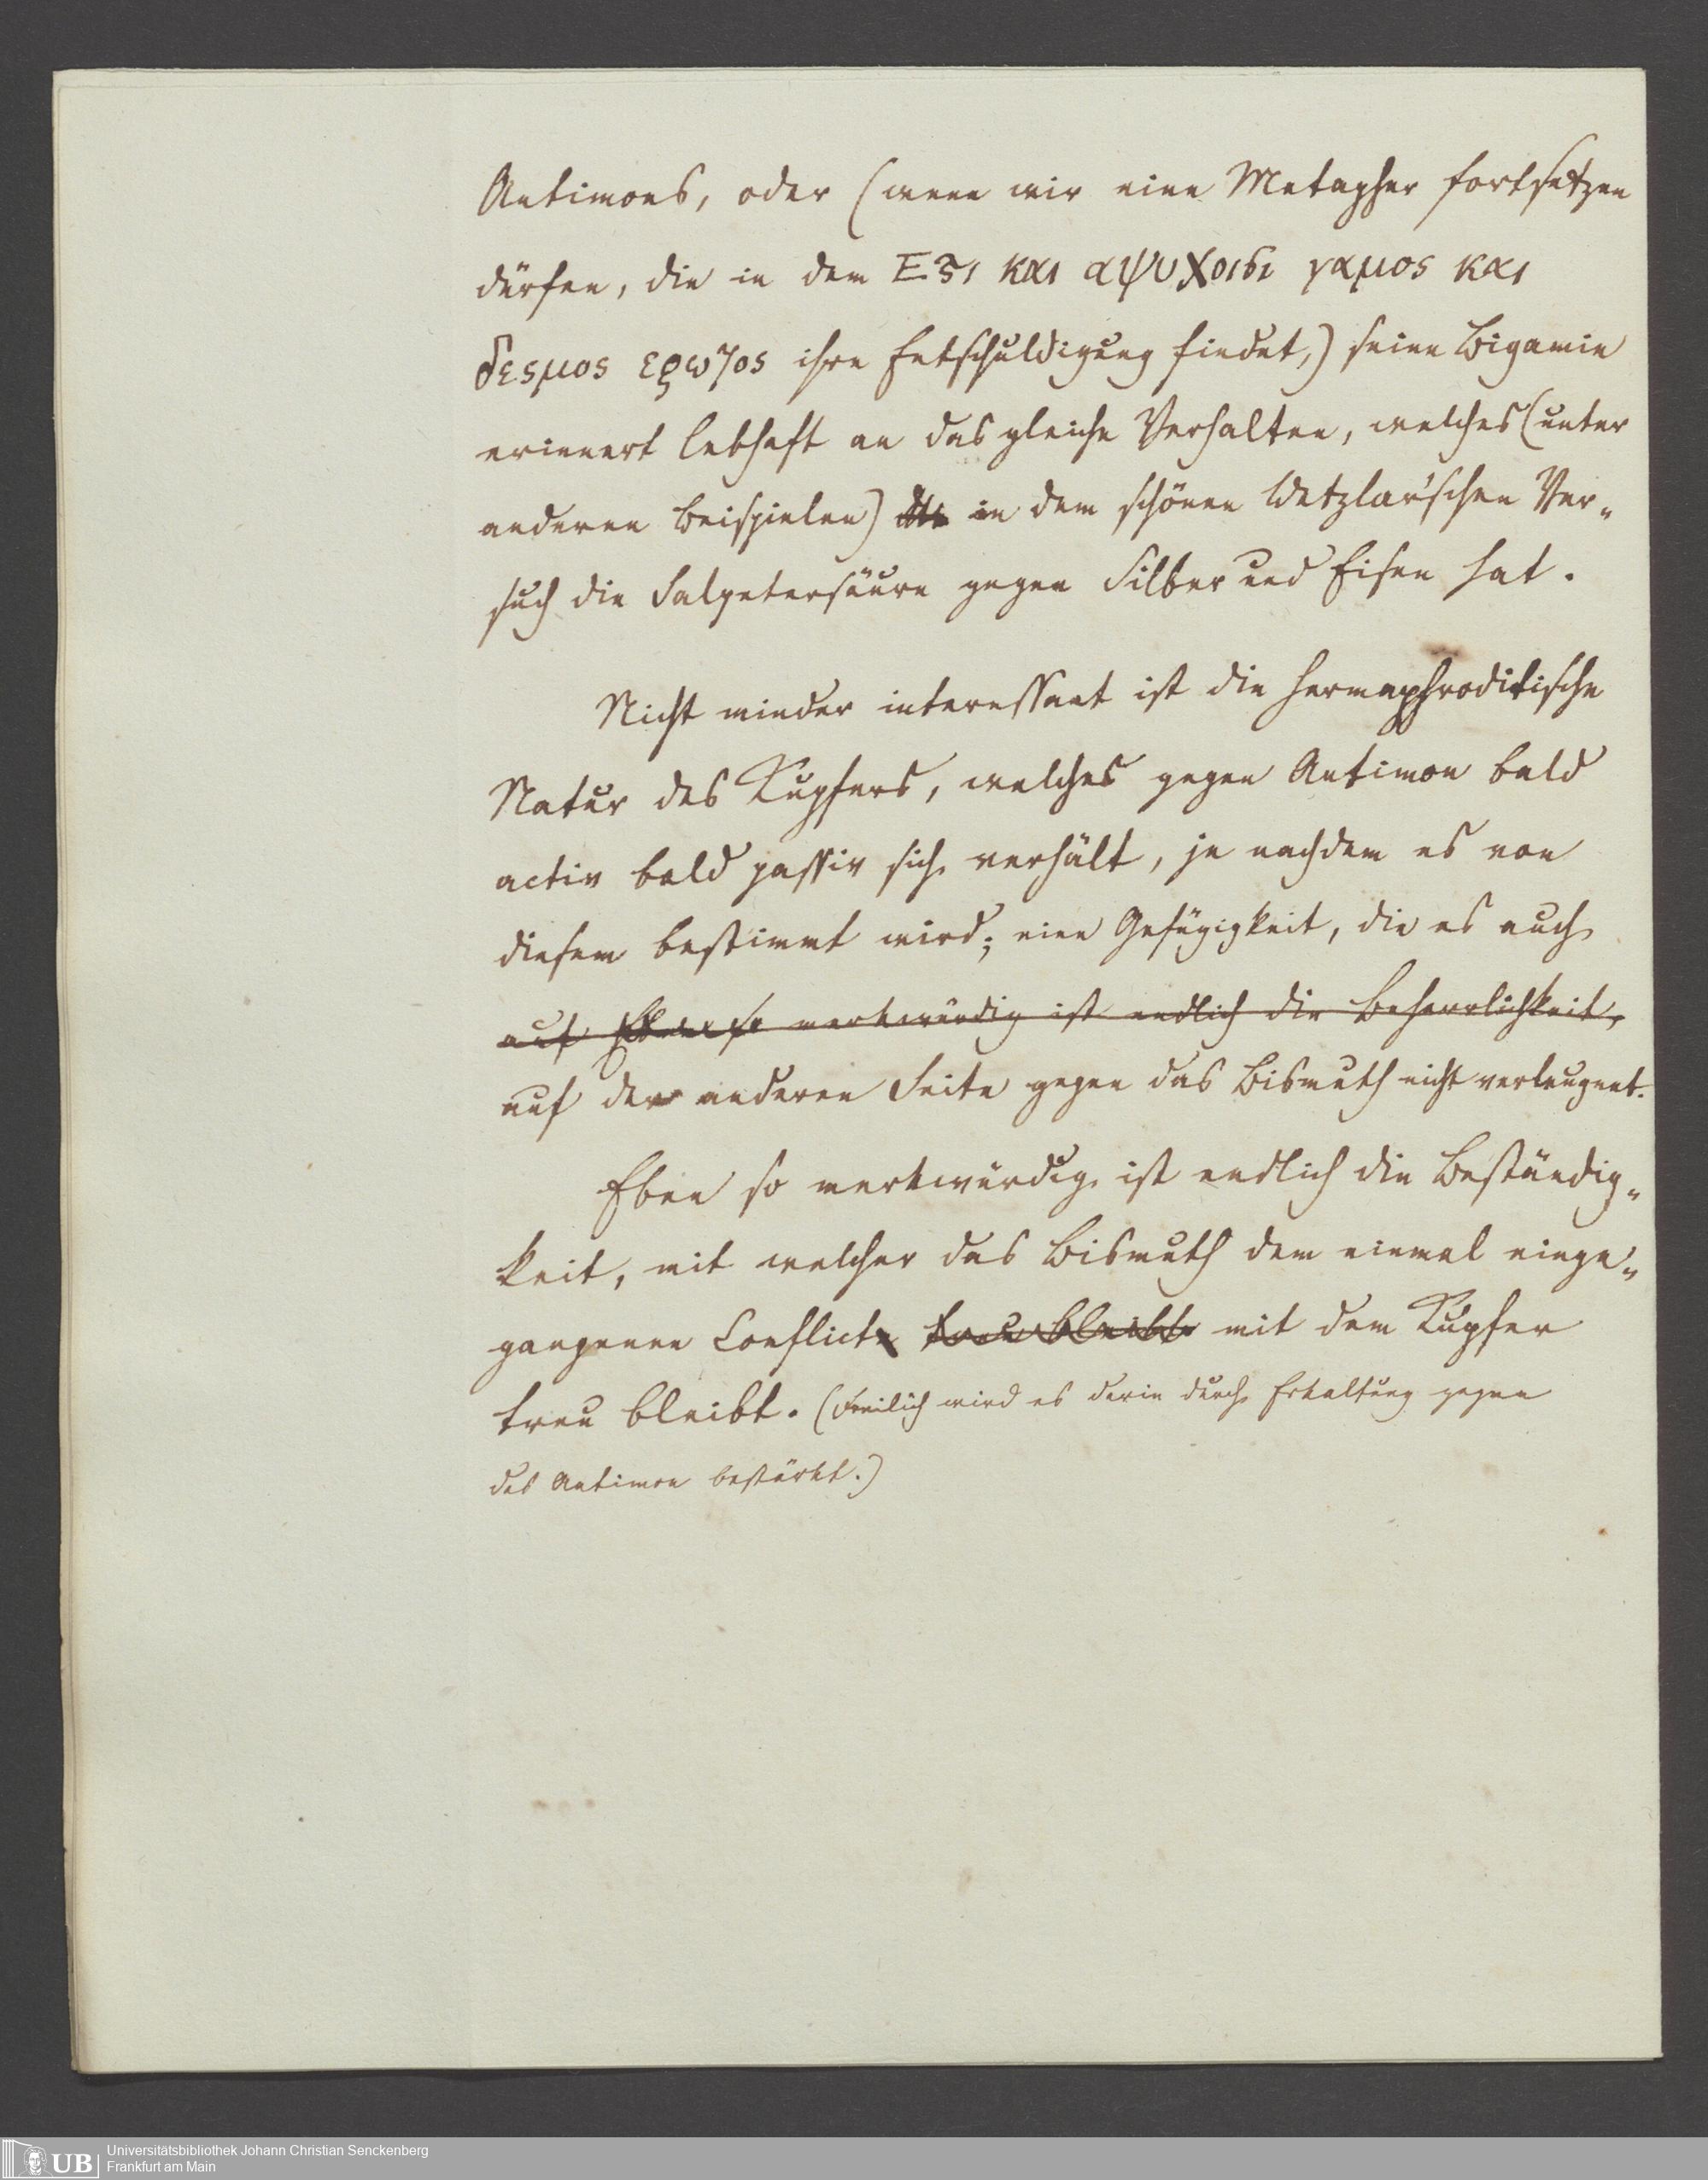 Antimons, oder (wenn wir eine Metapher fortsetzen
dürfen, die in dem Εϛι και αψυχοισι γαμος και
δεςμος ερωτος ihre Entschuldigung findet,) seine Bigamie
erinnert lebhaft an das gleiche Verhalten, welches (unter
anderen Beispielen) in dem schönen Wetzlar'schen Ver-
such die Salpetersäure gegen Silber und Eisen hat.
Nicht minder interessant ist die hermaphroditische
Natur des Kupfers, welches gegen Antimon bald
activ bald passiv sich verhält, je nachdem es von
diesem bestimmt wird; eine Gefügigkeit, die es auch
auf Eben so merkwürdig ist endlich die Beharrlichkeit,
auf der anderen Seite gegen das Bismuth nicht verleugnet.
Eben so merkwürdig ist endlich die Beständig-
keit, mit welcher das Bismuth dem einmal einge-
gangenen Conflict treu bleibt mit dem Kupfer
treu bleibt. (Freilich wird es darin durch Erkaltung gegen
das Antimon bestärkt.)
Universitätsbibliothek Johann Christian Senckenberg
UB Frankfurt am Main